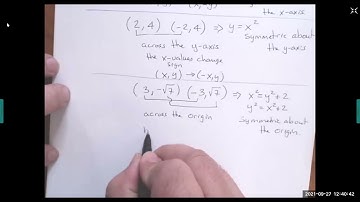 the x-axis
(2,4) (-2,4) ⇒ y=x²
across the y-axis
Symmetric about the y-axis
the x-values change sign
(x,y) → (-x,y)
(3,-√7) (-3,√7) ⇒ x²=y²+2
y²=x²+2
across the origin
Symmetric about the origin
2021-09-27 12:40:42